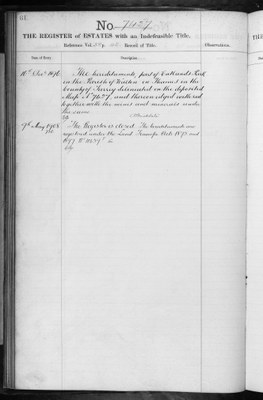 No 7427
THE REGISTER of ESTATES with an Indefeasible Title.
Reference Vol. Record of Title.
Observations.
Date of Entry.
Description
The hereditaments, part of Oatlands Park
in the Parish of Walton on Thames in the
County of Surrey delineated on the deposited
Map No 7427, and thereon edged with red
together with the mines and minerals under
the same
May 1908
The Register is closed. The hereditaments are
registered under the Land Transfer Acts 1875 and
1897